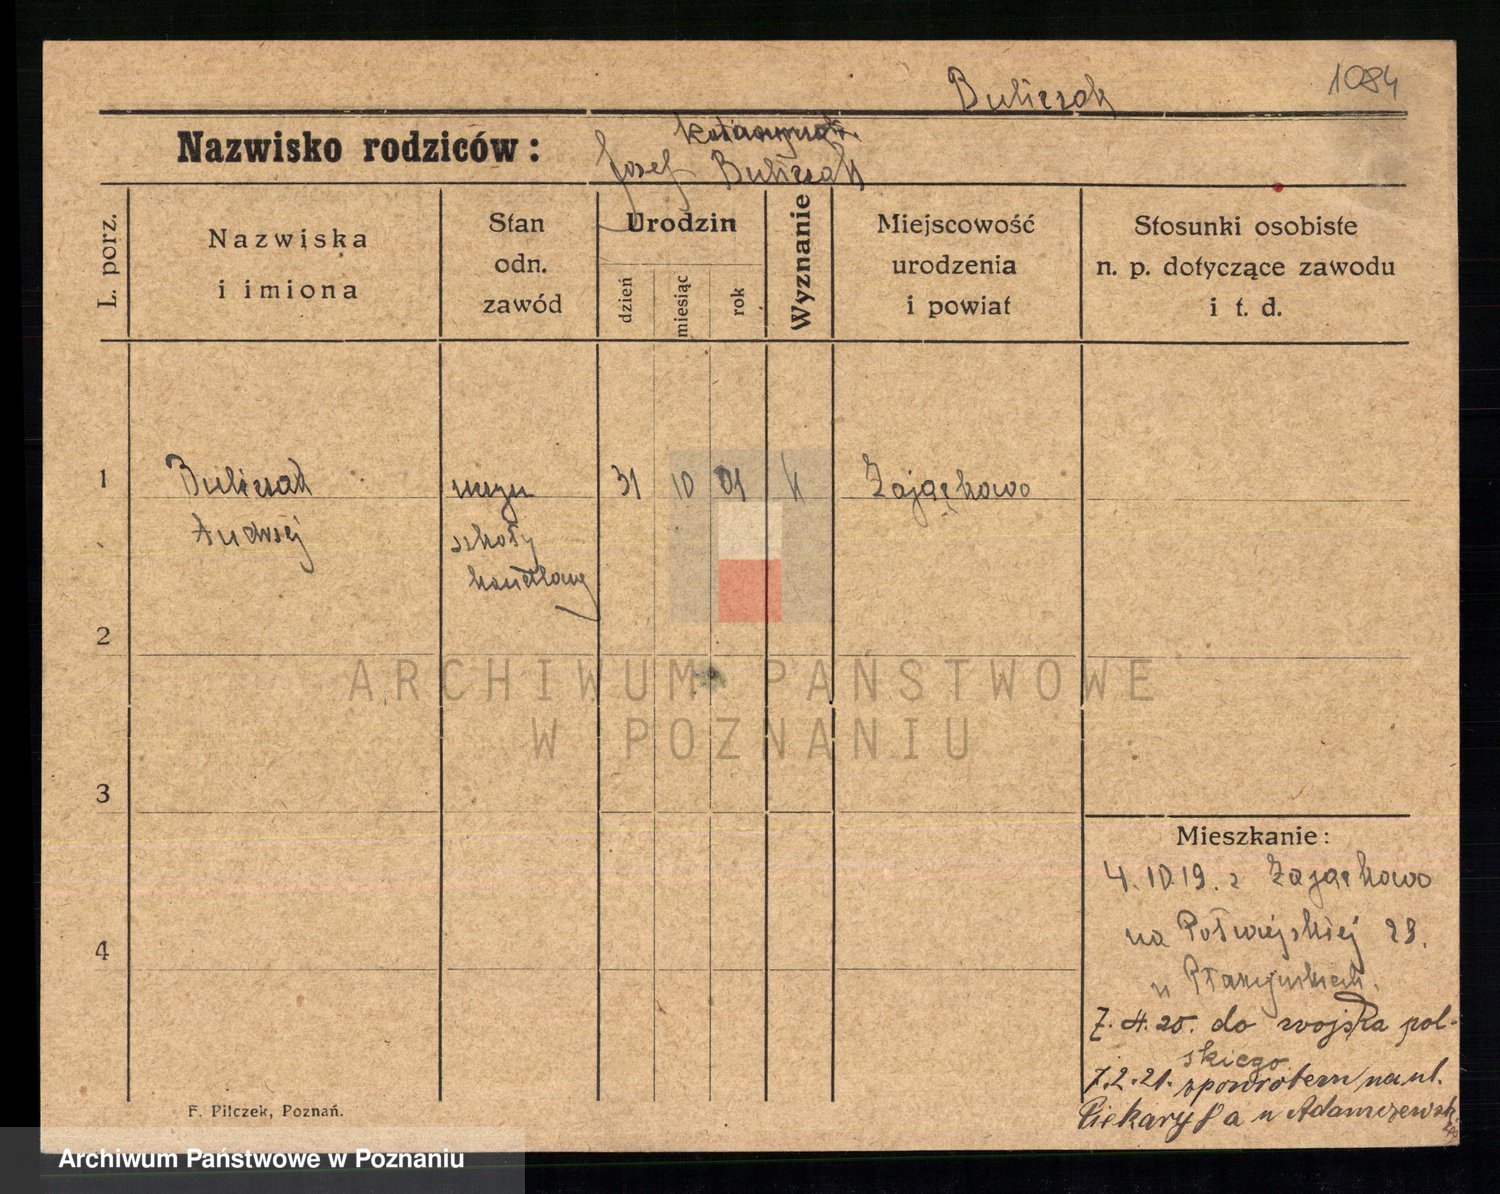 Buliczak
1084
Nazwisko rodziców:
Józef Buliczak
L. porz.
Nazwiska
i imiona
Stan
odn.
zawód
Urodzin
dzień
miesiąc
rok
Wyznanie
Miejscowość
urodzenia
i powiat
Stosunki osobiste
n. p. dotyczące zawodu
i t. d.
1
Buliczak
Andrzej
uczeń
szkoły
handlowej
31
10
01
k
Zajączkowo
2
3
4
Mieszkanie:
4.10.19. z Zajączkowo
na Półwiejskiej 23.
u
7.4.20. do wojska pol-
skiego
7.2.21. zpowrotem na ul.
Piekary 8a u Adamczewsk.
F. Pilczek, Poznań.
ARCHIWUM PAŃSTWOWE
W POZNANIU
Archiwum Państwowe w Poznaniu